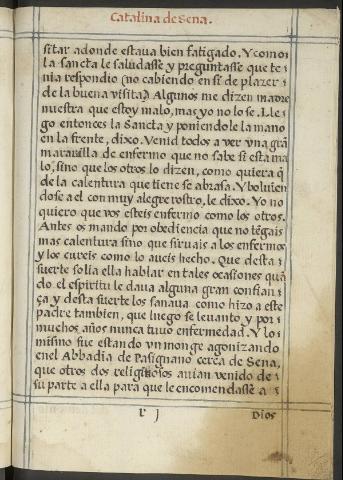 Catalina de Sena.
sitar adonde estaua bien fatigado. Y como
la sancta le saludasse y preguntasse que te-
nia respondio (no cabiendo en si de plazer
de la buena visita) Algunos me dizen madre
nuestra que estoy malo, mas yo no lo se. Lle-
go entonces la Sancta y poniendole la mano
en la frente, dixo. Venid todos a ver vna grā
marauilla de enfermo que no sabe si esta ma
lo, sino que los otros lo dizen, como quiera q̄
de la calentura que tiene se abrasa. Y boluien
dose a el con muy alegre rostro, le dixo. Yo no
quiero que vos esteis enfermo como los otros.
Antes os mando por obediencia que no tēgais
mas calentura sino que siruais a los enfermos
y los cureis como lo aueis hecho. Que desta
suerte solia ella hablar en tales ocasiones quā
do el espiritu le daua alguna gran confian
ça y desta suerte los sanaua como hizo a este
padre tambien, que luego se leuanto y por
muchos años nunca tuuo enfermedad. Y lo
mismo fue estando vn monge agonizando
en el Abbadia de Pasignano cerca de Sena,
que otros dos religiosos auian venido de
su parte a ella para que le encomendasse a
r j
Dios